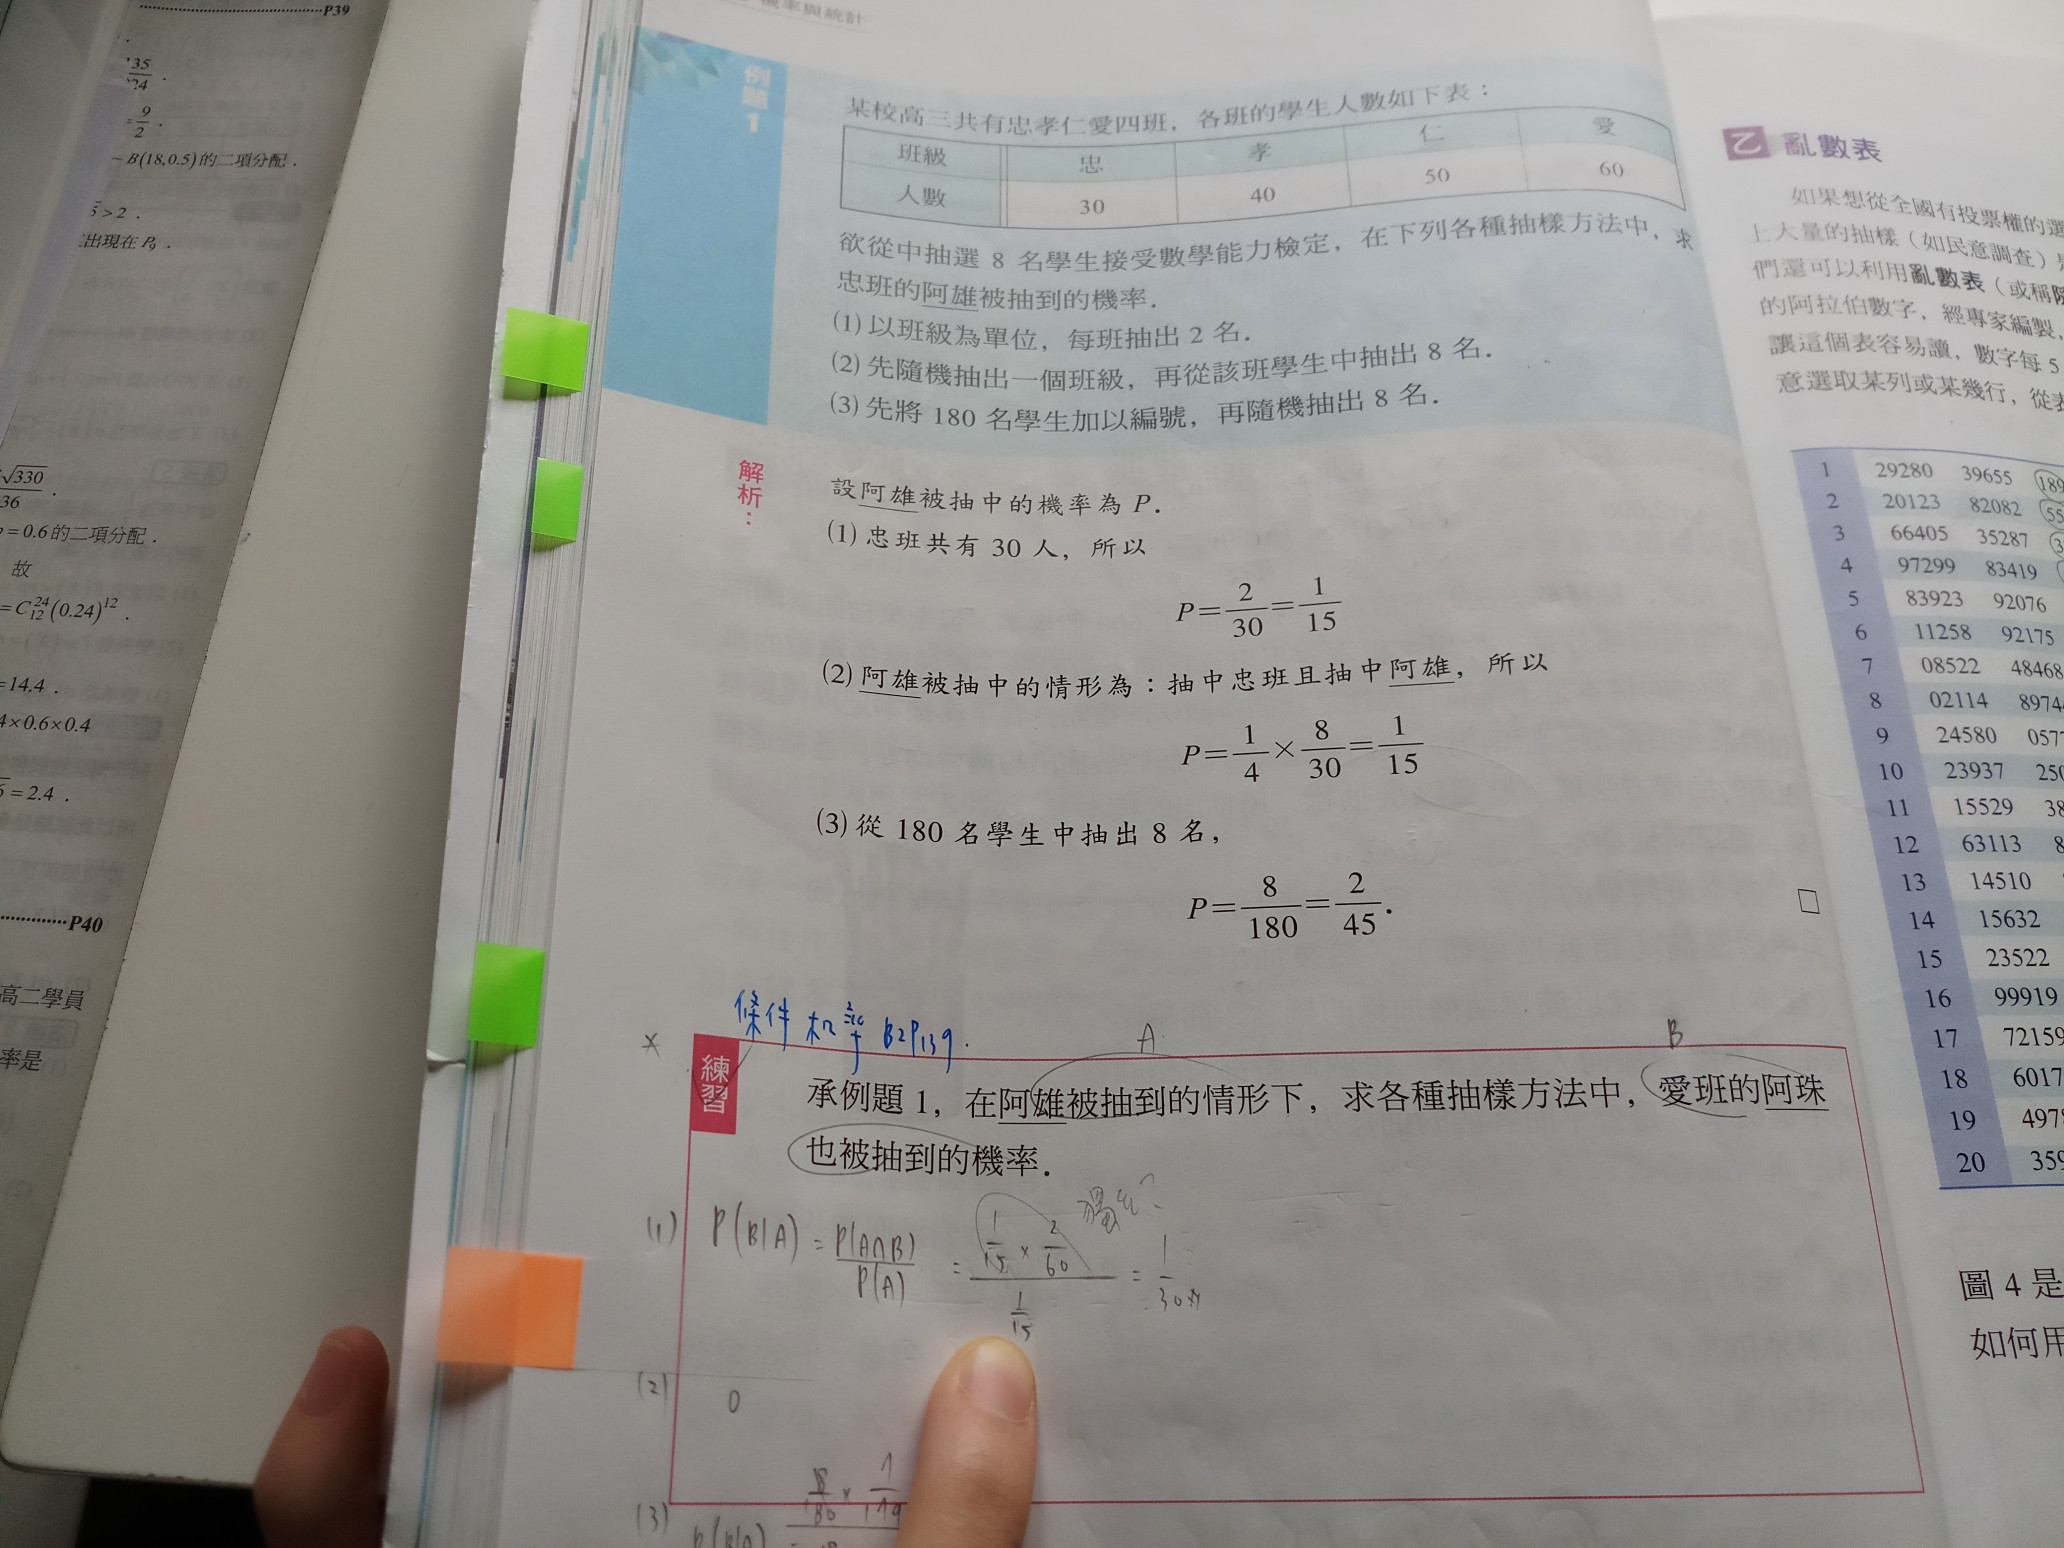 P39
135
24
= 9/2 .
~ B(18,0.5)的二項分配．
> 2．
出現在 P₉．
√330
36
= 0.6 的二項分配．
故
= C₁₂²⁴ (0.24)¹² .
= 14.4．
4×0.6×0.4
= 2.4．
P40
高二學員
率是
機率與統計
例題 1
某校高三共有忠孝仁愛四班，各班的學生人數如下表：
班級 忠 孝 仁 愛
人數 30 40 50 60
欲從中抽選 8 名學生接受數學能力檢定，在下列各種抽樣方法中，求
忠班的阿雄被抽到的機率．
(1) 以班級為單位，每班抽出 2 名．
(2) 先隨機抽出一個班級，再從該班學生中抽出 8 名．
(3) 先將 180 名學生加以編號，再隨機抽出 8 名．
解析：
設阿雄被抽中的機率為 P．
(1) 忠班共有 30 人，所以
P = 2/30 = 1/15
(2) 阿雄被抽中的情形為：抽中忠班且抽中阿雄，所以
P = 1/4 × 8/30 = 1/15
(3) 從 180 名學生中抽出 8 名，
P = 8/180 = 2/45 .
□
條件机率 B2P139.
A
B
練習
承例題 1，在阿雄被抽到的情形下，求各種抽樣方法中，愛班的阿珠
也被抽到的機率．
(1) P(B|A) = P(A∩B)/P(A) = (1/15 × 2/60)/(1/15) = 1/30
(2) 0
(3) P(B|A) = 8/180 ×
乙 亂數表
如果想從全國有投票權的選
上大量的抽樣（如民意調查）
們還可以利用亂數表（或稱隨
的阿拉伯數字，經專家編製，
讓這個表容易讀，數字每 5
意選取某列或某幾行，從表
1 29280 39655 189
2 20123 82082 55
3 66405 35287 3
4 97299 83419
5 83923 92076
6 11258 92175
7 08522 48468
8 02114 8974
9 24580 057
10 23937 250
11 15529 38
12 63113 8
13 14510
14 15632
15 23522
16 99919
17 72159
18 6017
19 497
20 359
圖 4 是
如何用